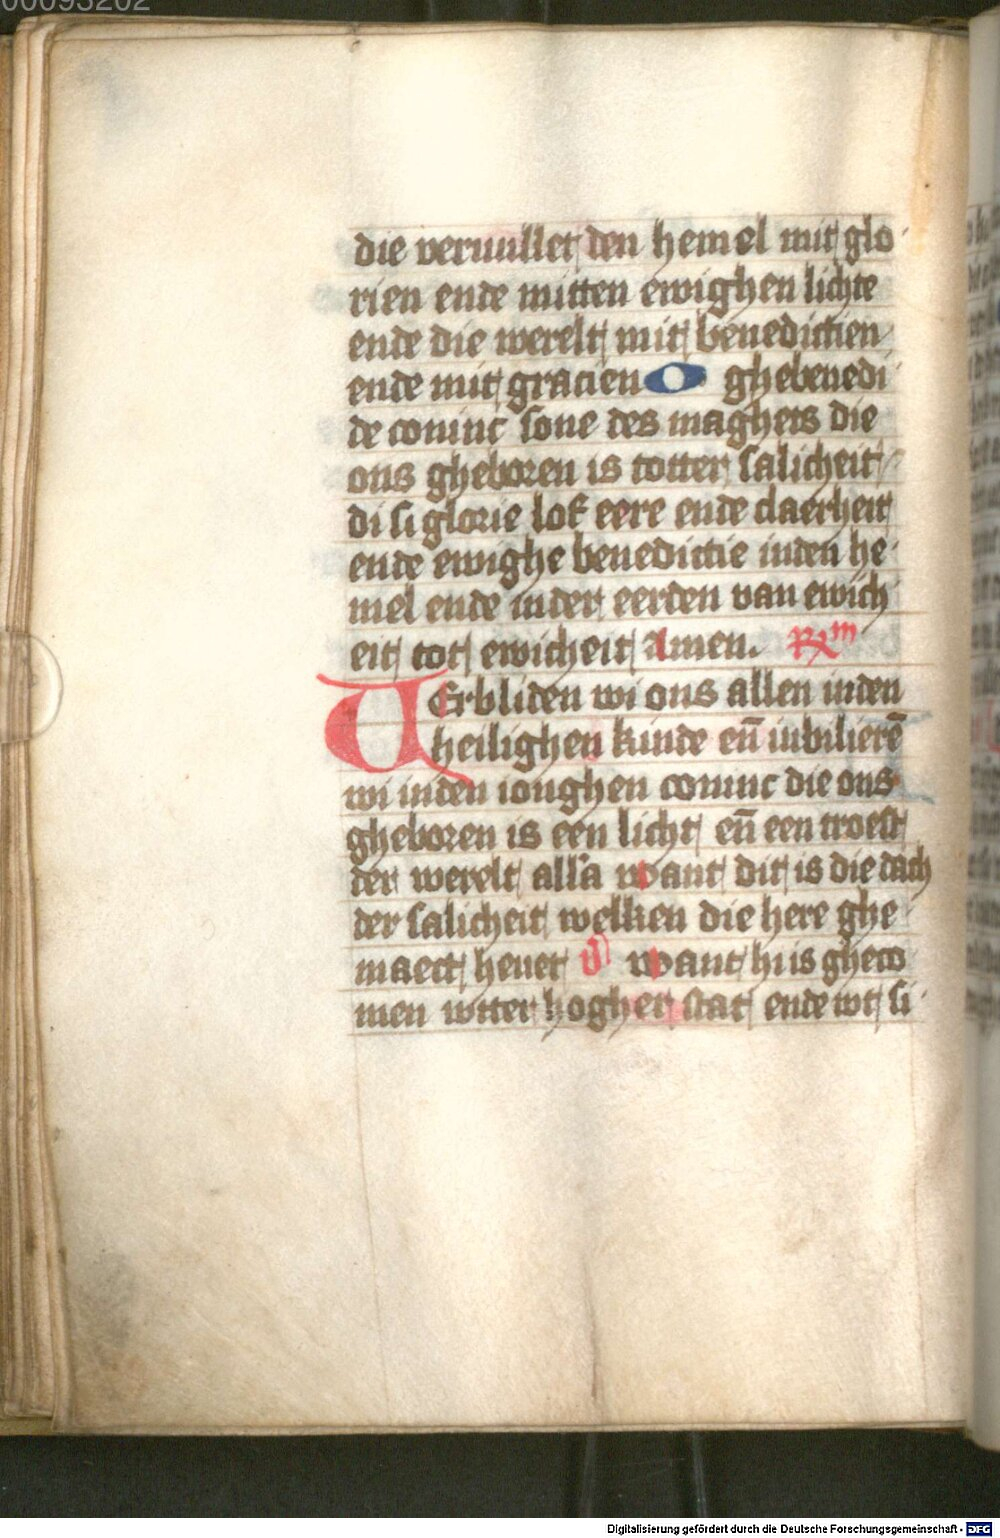 00093202
die veruullet den hemel mit glo
rien ende mitten ewighen lichte
ende die werelt mit benedictien
ende mit gracien O ghebenedi
de coninc sone des maghets die
ons gheboren is totter salicheit
di si glorie lof eere ende claerheit
ende ewighe benedictie inden he
mel ende inder eerden van ewich
eit tot ewicheit Amen. Rm
VErbliden wi ons allen inden
heilighen kinde eñ iubilierē
wi inden ionghen coninc die ons
gheboren is een licht eñ een troest
der werelt alla want dit is die dach
der salicheit welken die here ghe
maect heuet V want hi is gheco
men wtter hogher stat ende wt si
Digitalisierung gefördert durch die Deutsche Forschungsgemeinschaft - DFG